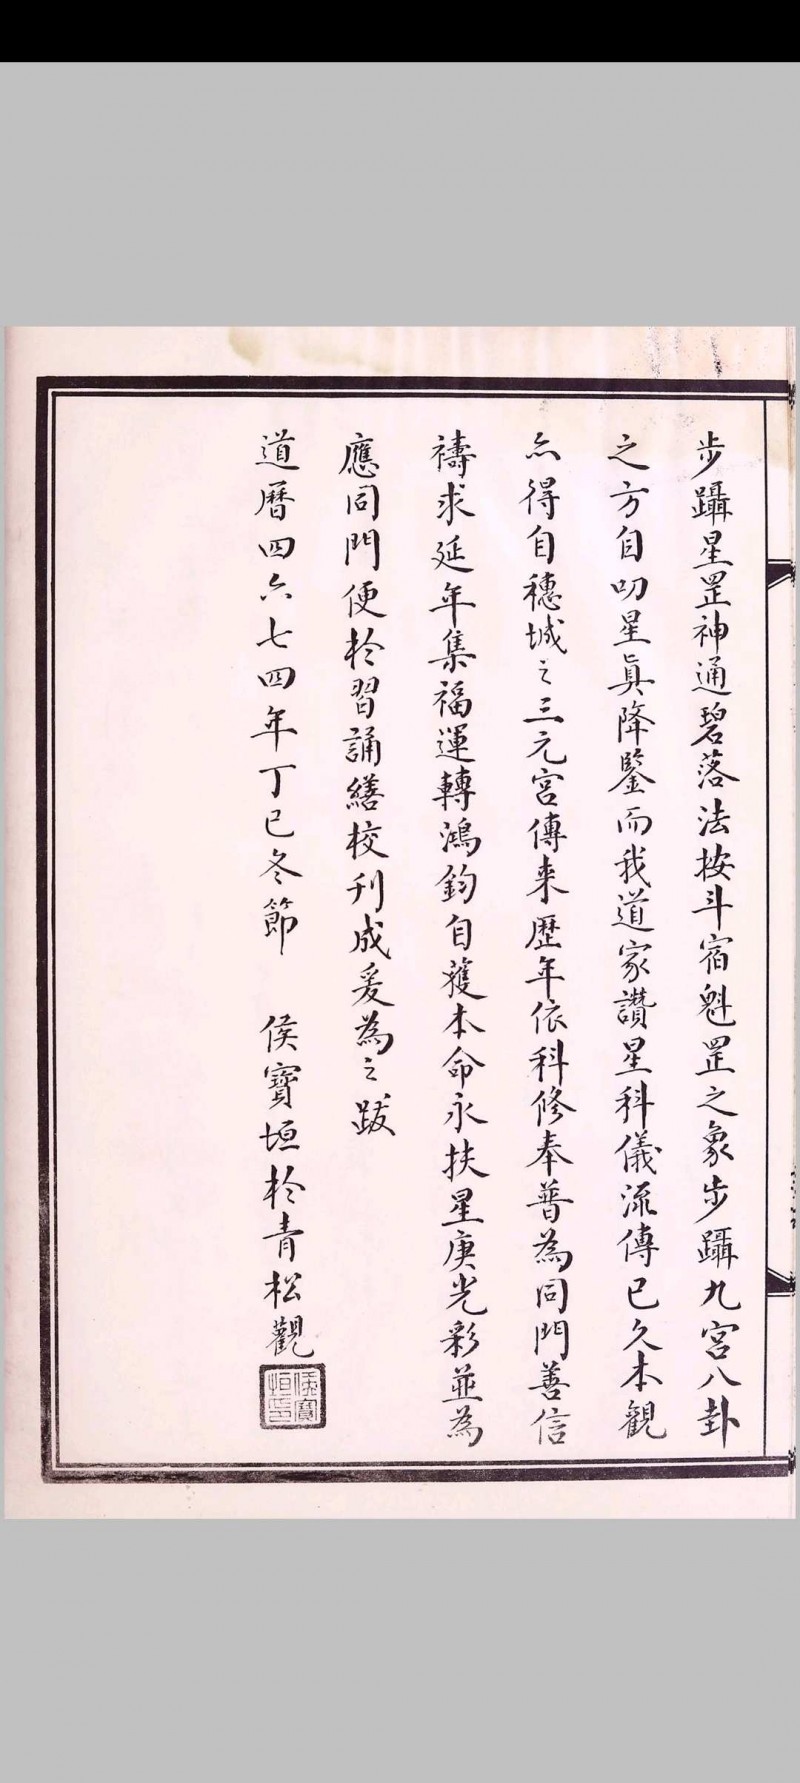 步躡星罡神通碧落法按斗宿魁罡之象步躡九宮八卦
之方自叨星眞降鑒而我道家讚星科儀流傳已久本觀
亦得自穗城之三元宮傳来歷年依科修奉普為同門善信
禱求延年集福運轉鴻鈞自獲本命永扶星庚光彩並為
應同門便於習誦繕校刊成爰為之跋
道曆四六七四年丁巳冬節　侯寶垣於青松觀
侯寶垣印